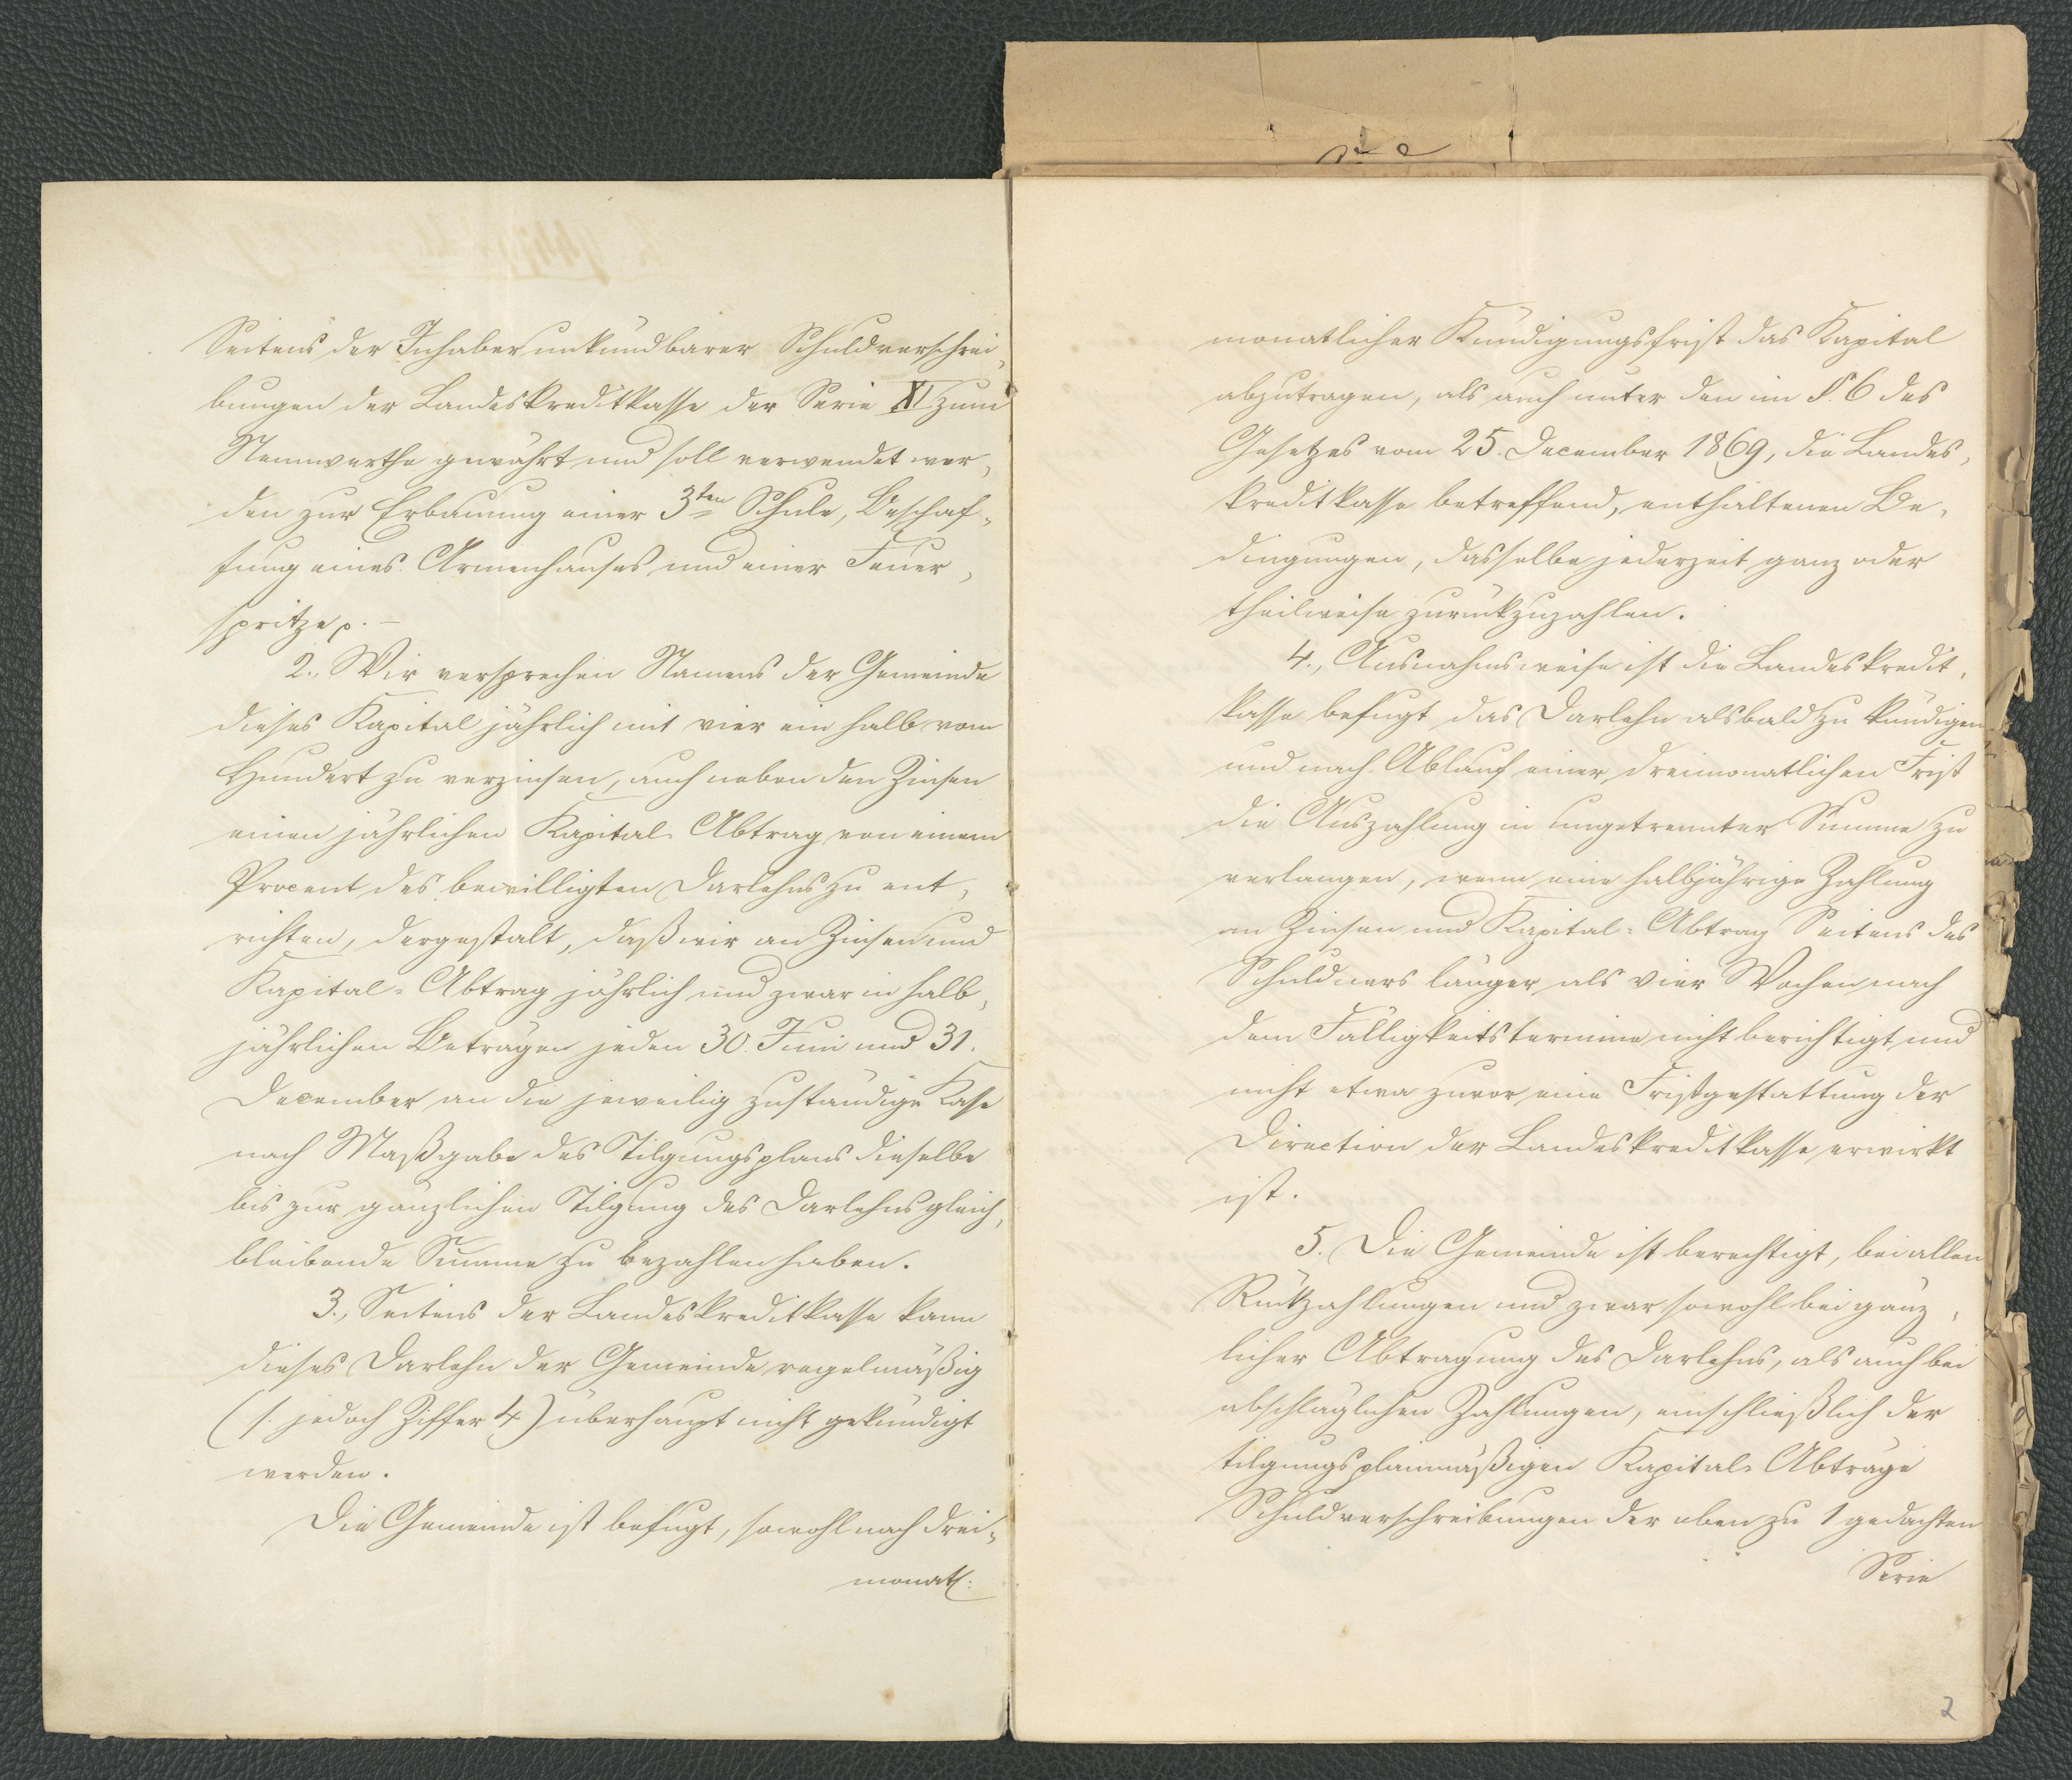 Seitens der Inhaber unkündbarer Schuldverschrei-
bungen der Landeskreditkasse der Serie XI zum
Nennwerthe gewährt und soll verwendet wer-
den zur Erbauung einer 3ten Schule, Beschaf-
fung eines Armenhauses und einer Feuer-
spritze p. –
2., Wir versprechen Namens der Gemeinde
dieses Kapital jährlich mit vier ein halb vom
Hundert zu verzinsen, auch neben den Zinsen
einen jährlichen Kapital-Abtrag von einem
Procent des bewilligten Darlehns zu ent-
richten, dergestalt, daß wir an Zinsen und
Kapital-Abtrag jährlich und zwar in halb-
jährlichen Beträgen jeden 30. Juni und 31.
December an die jeweilig zuständige Kasse
nach Maßgabe des Tilgungsplans dieselbe
bis zur gänzlichen Tilgung des Darlehns gleich-
bleibende Summe zu bezahlen haben.
3., Seitens der Landeskreditkasse kann
dieses Darlehn der Gemeinde regelmäßig
(s. jedoch Ziffer 4) überhaupt nicht gekündigt
werden.
Die Gemeinde ist befugt, sowohl nach drei-
monatl:
monatlicher Kündigungsfrist das Kapital
abzutragen, als auch unter den im §. 6 des
Gesetzes vom 25. December 1869, die Landes-
kreditkasse betreffend, enthaltenen Be-
dingungen, dasselbe jederzeit ganz oder
theilweise zurückzuzahlen.
4., Ausnahmsweise ist die Landeskredit-
kasse befugt das Darlehn alsbald zu kündigen
und nach Ablauf einer dreimonatlichen Frist
die Auszahlung in ungetrennter Summe zu
verlangen, wenn eine halbjährige Zahlung
an Zinsen und Kapital-Abtrag Seitens des
Schuldners länger als vier Wochen nach
dem Fälligkeitstermine nicht berichtigt und
nicht etwa zuvor eine Fristgestattung der
Direction der Landeskreditkasse erwirkt
ist.
5. Die Gemeinde ist berechtigt, bei allen
Rückzahlungen und zwar sowohl bei gänz-
licher Abtragung des Darlehns, als auch bei
abschläglichen Zahlungen, einschließlich der
tilgungsplanmäßigen Kapital-Abträge
Schuldverschreibungen der oben zu 1 gedachten
Serie
2